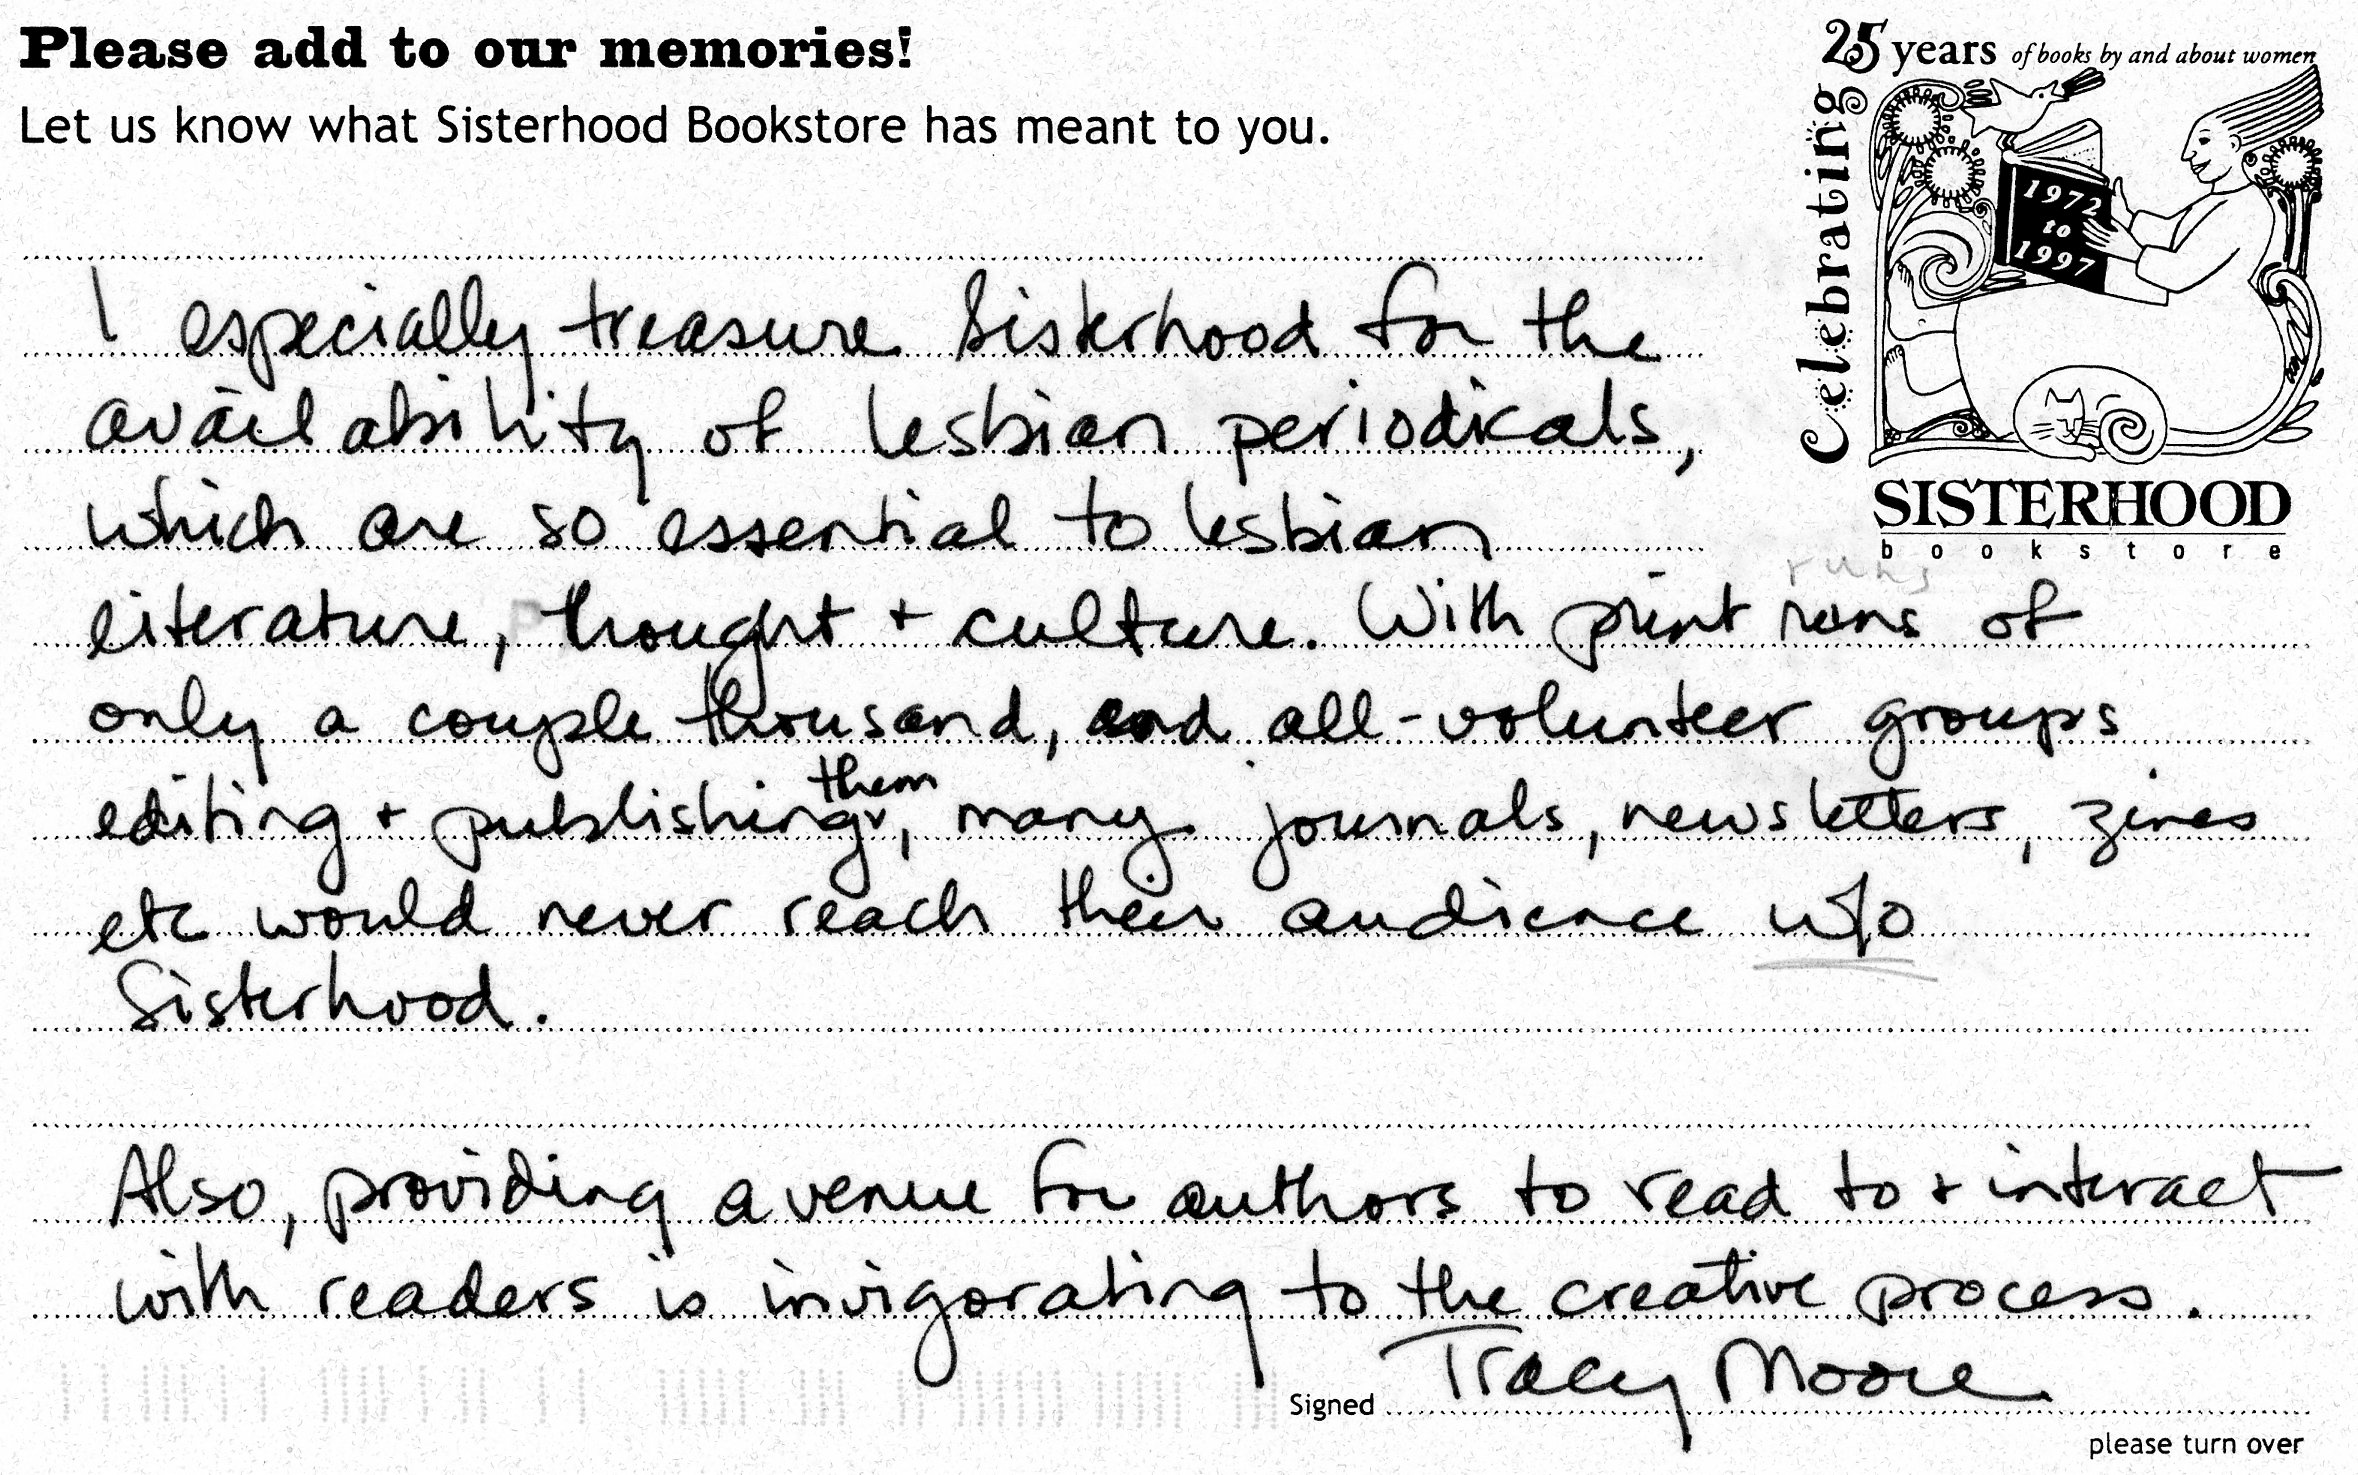 Please add to our memories!
Let us know what Sisterhood Bookstore has meant to you.
25 years of books by and about women
Celebrating
1972
to
1997
SISTERHOOD
bookstore
I especially treasure Sisterhood for the
availability of lesbian periodicals,
which are so essential to lesbian
runs
literature, thought + culture. With print runs of
only a couple thousand, and all-volunteer groups
them
editing + publishing, many journals, newsletters, zines
etc would never reach their audience w/o
Sisterhood.
Also, providing a venue for authors to read to + interact
with readers is invigorating to the creative process.
Signed Tracy Moore
please turn over